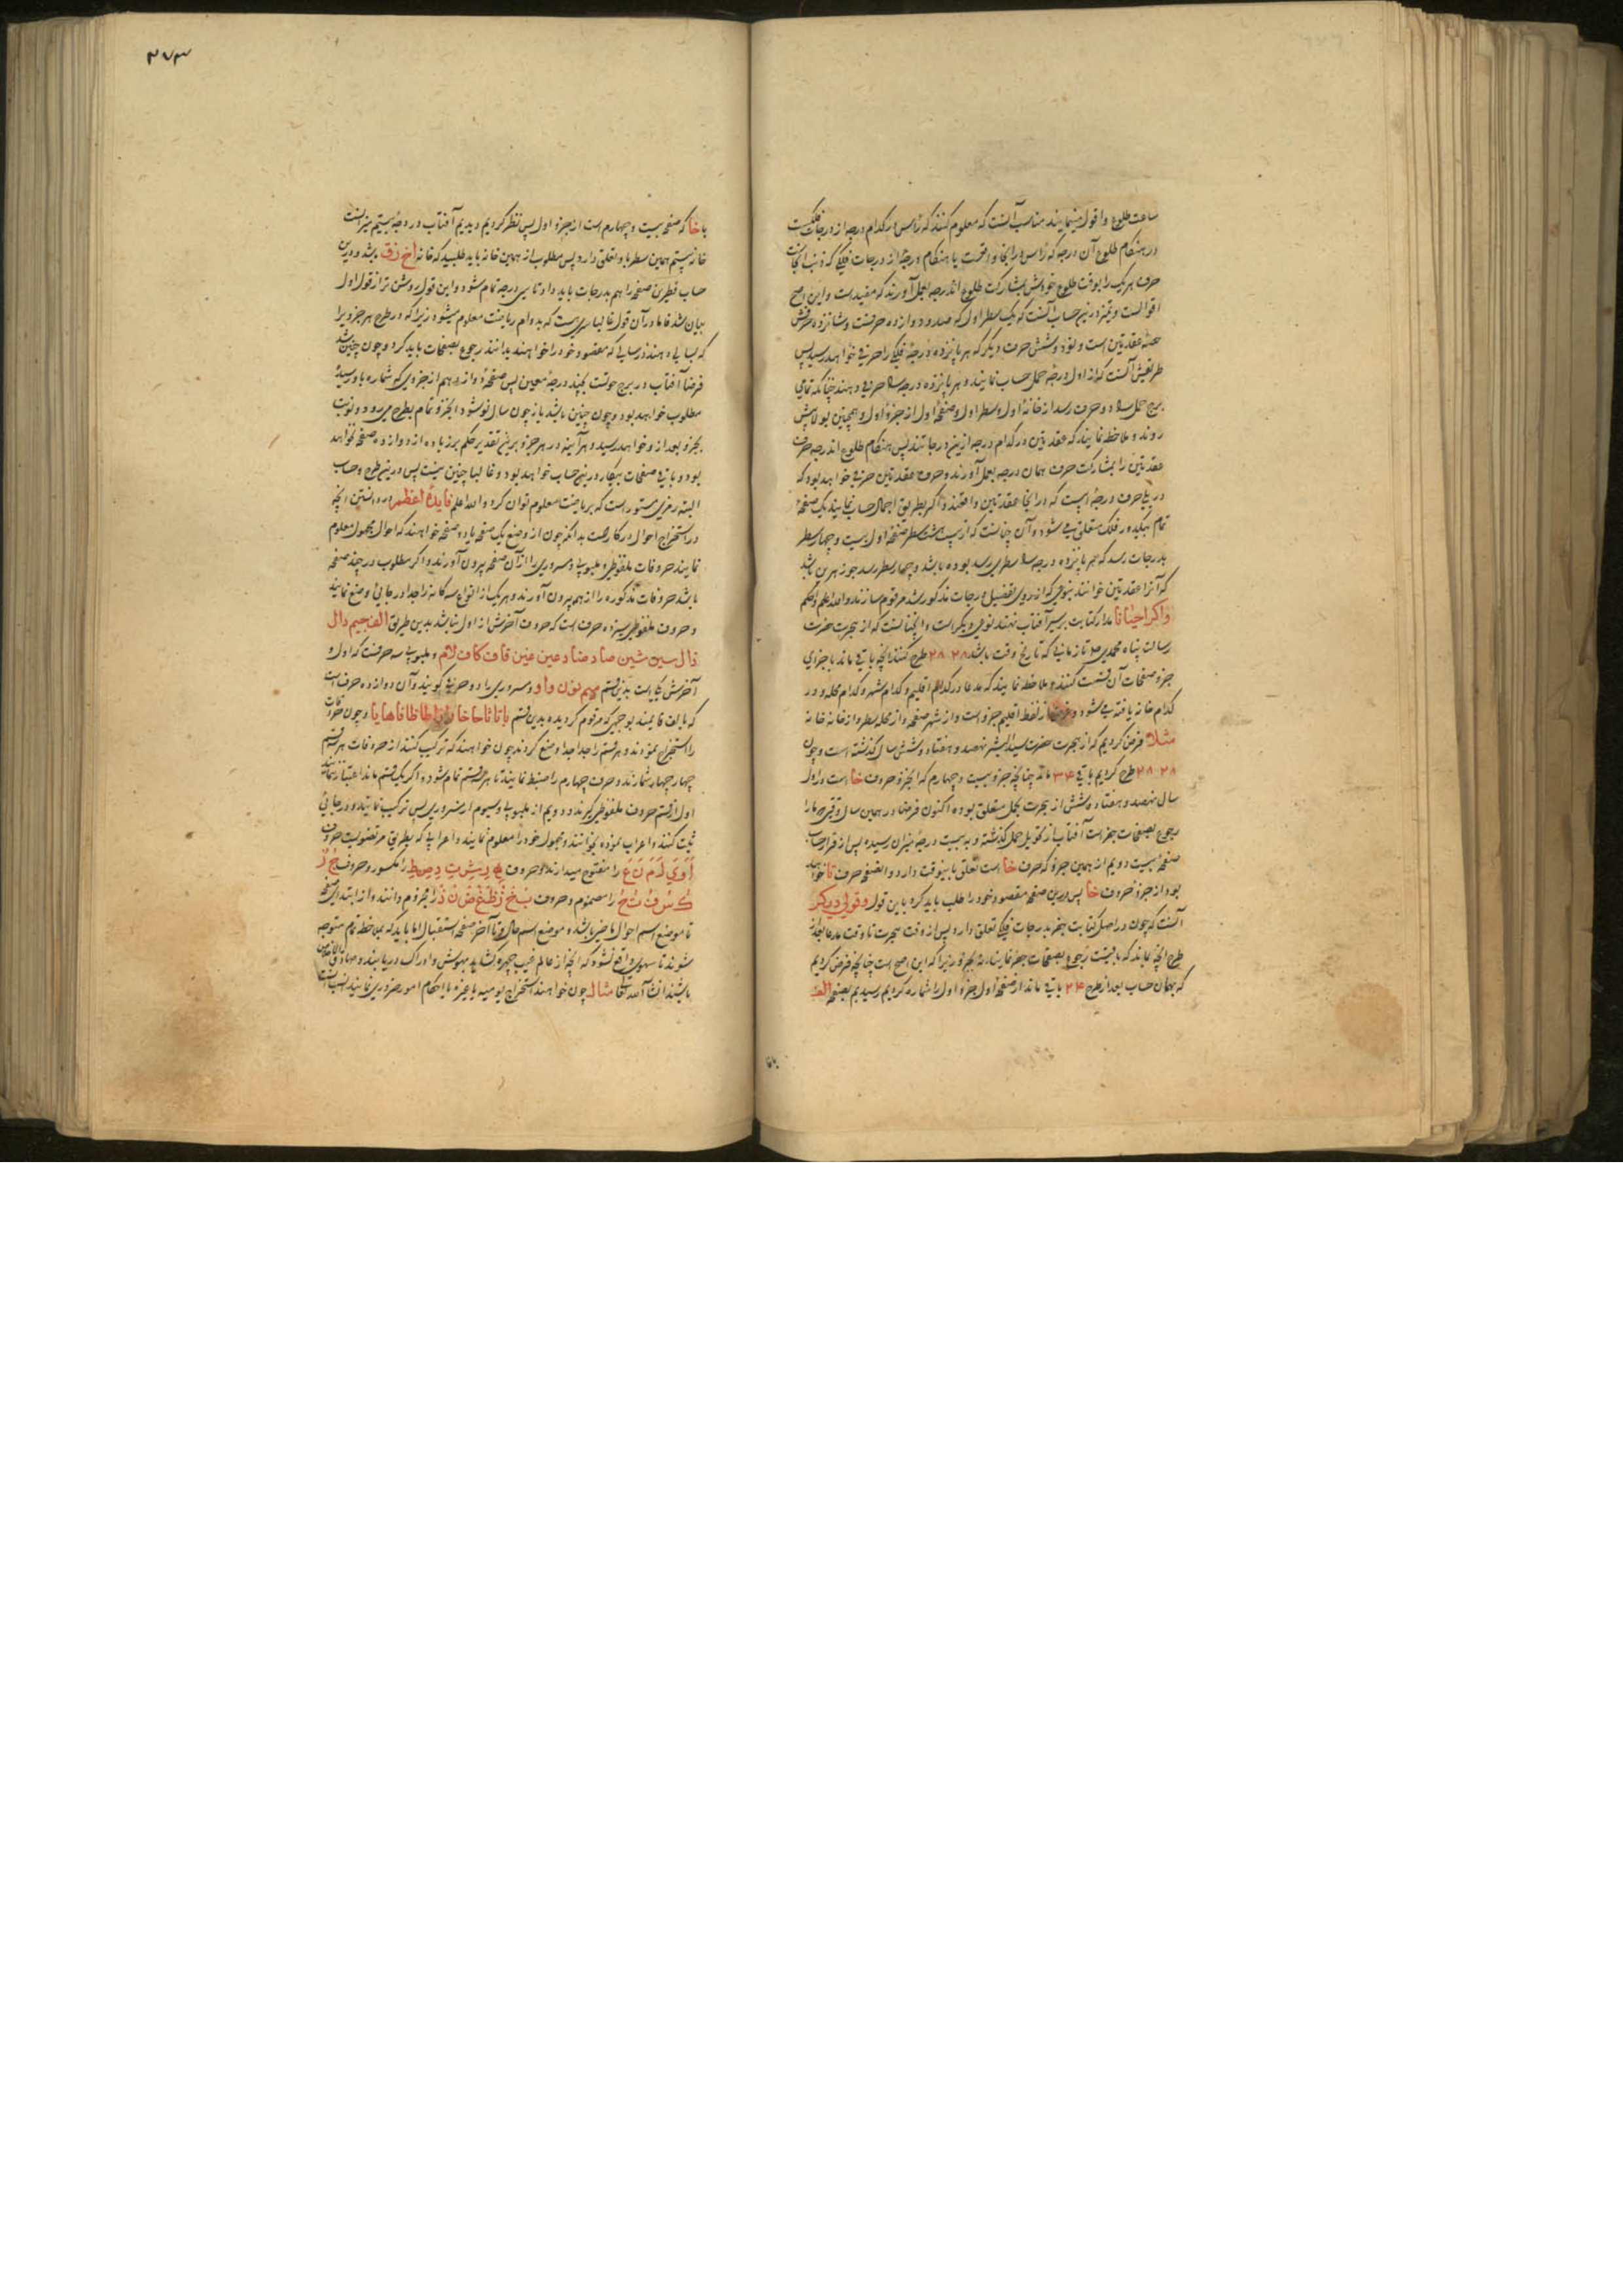 ساعت طلوع و افول مینمایند مناسب آنست که معلوم کنند که راس در کدام درجه از درجات فلکست
در هنکام طلوع آن درجه که راس در انجا واقعست یا هنکام درجهٔ از درجات فلکی که ذنب انجاست
حرف هر یک را بوقت طلوع خودش بمشارکت طلوع اندرجه بعمل آورند که مفیدست و این اصح
اقوالست و نیز درین حساب آنست که یک سطر اول که صد و دوازده حرفست و شانزده حرفش
حصهٔ عقدتین است و نود و شش حرف دیگر که هر پانزده درجهٔ فلکی را حرفی خواهد رسید پس
طریقش آنست که از اول درجه حمل حساب نمایند و هر پانزده درجه را حرفی دهند چنانکه تمامی
برج حمل را دو حرف رسد از خانهٔ اول و سطر اول و صفحهٔ اول از جزو اول و همچنین بولا پیش
روند و ملاحظه نمایند که عقدتین در کدام درجه ازین درجاتند پس هنکام طلوع اندرجه حرف
عقدتین را بمشارکت حرف همان درجه بعمل آورند و حرف عقدتین حرفی خواهد بود که
در پی حرف درجهٔ ایست که در انجا عقدتین واقعند و اکر بطریق اجمال حساب نمایند یک صفحهٔ
تمام بیکدور فلک متعلق می شود و آن چنانست که از بیست هشت سطر صفحهٔ اول بیست و چهار سطر
بدرجات رسد که هر پانزده درجه را سطری رسد بوده باشد و چهار سطر رسد جوزهرین باشد
که آنرا عقدتین خوانند بنوعی که از روی تفصیل درجات مذکور شد مرقوم سازند و الله اعلم و احکم
و اکر احیانا مدار کتابت بر سیر آفتاب نهند نوعی دیکر است و انچنانست که از هجرت حضرت
رسالت پناه محمدی صلعم تا زمانی که تاریخ وقت باشد ۲۸ ۲۸ طرح کنند انچه باقی ماند باجزای
جزو صفحات آن قسمت کنند و ملاحظه نمایند که مدعا در کدام اقلیم و کدام شهر و کدام محله و در
کدام خانه یافته می شود و غرض از لفظ اقلیم جزو است و از شهر صفحه و از محله سطر و از خانه خانه
مثلا فرض کردیم که از هجرت حضرت سید البشر نهصد و هفتاد و شش سال کذشته است و چون
۲۸ ۲۸ طرح کردیم باقی ۲۴ ماند چنانچه جزو بیست و چهارم که انجزو حروف خا است در اول
سال نهصد و هفتاد و شش از هجرت بحمل متعلق بوده اکنون فرضا در همین سال وقتی که ما را
رجوع بصفحات جفر است آفتاب از تحویل حمل کذشته و به بیست درجهٔ میزان رسیده پس از قرار حساب
صفحهٔ بیست دویم از همین جزو که حرف خا است تعلق باینوقت دارد و الصفحه حرف تا خواهد
بود از جزو حروف خا پس درین صفحه مقصود خود را طلب باید کرد باین قول و قولی دیکر
آنست که چون در اصل کتابت جفر بدرجات فلکی تعلق دارد پس از وقت هجرت تا وقت مدعا بعد از
طرح انچه بماند که باقیست رجوع بصفحات جفر نمایند نه بجزو زیرا که این اصح است چنانچه فرض کردیم
که بهمان حساب بعد از طرح ۲۴ باقی ماند از صفحهٔ اول جزو اول را شماره کردیم رسیدیم بصفحهٔ الف
۳۷۳
با خا که صفحه بیست و چهارم است از جزو اول پس نظر کردیم و دیدیم آفتاب در درجهٔ بیستم میزانست
خانه بیستم همین سطر باو تعلق دارد پس مطلوب از همین خانه باید طلبید که خانه اخ زق باشد و درین
حساب قطرین صفحه را هم بدرجات باید داد تا سی درجه تمام شود و این قول روشن تر از قول اول
بیان شد فاما در آن قول غالبا سری هست که بدوام ریاضت معلوم میشود زیرا که در طرح هر جزویرا
که بسالی دهند در سالی که مقصود خود را خواهند بدانند رجوع بصفحات باید کرد و چون چنین باشد
فرضا آفتاب در برج حوتست بچند درجهٔ معین پس صفحهٔ دوازدهم از جزوی که شماره باو رسیدهٔ
مطلوب خواهد بود و چون چنین باشد باز چون سال نو شود انجزو تمام بطرح می رود و نوبت
بجزو بعد از و خواهد رسید و هر آینه در هر جزو برین تقدیر حکم بر زیاده از دوازده صفحه نخواهد
بود و باقی صفحات بیکار درین حساب خواهد بود و غالبا چنین نیست پس درین طرح و حساب
البته رمزی مستور است که بریاضت معلوم توان کرد و الله اعلم فایدهٔ اعظم در دانستن انچه
در استخراج احوال در کار هست بدانکه چون از وضع یک صفحه یا ده صفحه خواهند که احوال مجهول معلوم
نمایند حروفات ملفوظی و ملبوبی و مسروری را از آن صفحه بیرون آورند و اکر مطلوب در چند صفحه
باشد حروفات مذکوره را از هم بیرون آورند و هر یک از انواع سه کانه را جدا در جائی وضع نمایند
و حروف ملفوظی سیزده حرف است که حروف آخرش از اول نباشد بدین طریق الف جیم دال
ذال سین شین صاد ضاد عین غین قاف کاف لام و ملبوبی سه حرفست که اول و
آخرش یکی است بدین قسم میم نون واو و مسروری را دو حرفی کویند و آن دوازده حرف است
که بالف قایمند بوجهی که مرقوم کردیده بدین قسم با تا ثا حا خا را زا طا ظا فا ها یا و چون حروفات
را استخراج نمودند و هر قسم را جدا جدا وضع کردند چون خواهند که ترکیب کنند از حروفات هر قسم
چهار چهار شمارند و حرف چهارم را ضبط نمایند تا هر سه قسم تمام شود و اکر یک قسم ماند اعتبار نمایند
اول از قسم حروف ملفوظی کیرند و دویم از ملبوبی و سیوم از مسروری پس ترکیب نمایند و در جائی
ثبت کنند و اعراب نموده بخوانند و مجهول خود را معلوم نمایند و اعرابی که بطریق مرتضویست حروف
را مفتوح میدارند و حروف را مکسور و حروف
را مضموم و حروف را مجزوم دانند و از ابتدای صفحه
تا موضع اسم احوال ماضی باشد و موضع اسم حال و تا آخر صفحه استقبال اما باید که بملاحظه تمام متوجه
شوند تا سهوی واقع نشود که انچه از عالم غیب چهره کشاید بهوش و ادراک دریابند
باشند ان شاء الله تعالی مثال چون خواهند استخراج یومیه یا غیره یا احکام امور ضروری نمایند